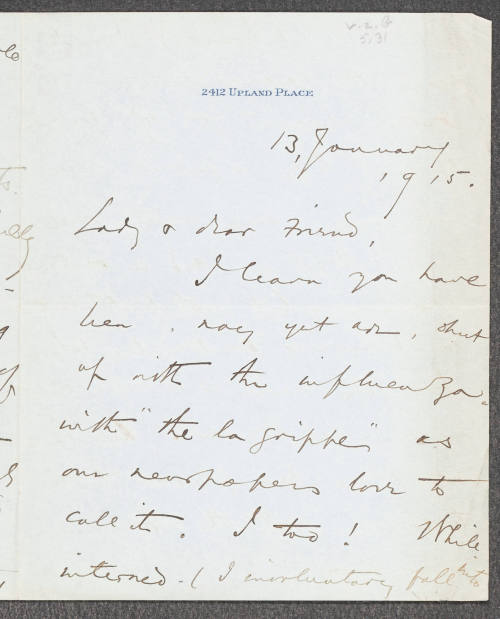 2412 UPLAND PLACE
13, January
1915.
Lady & dear Friend,
I learn you have
been, nay yet are, shut
up with the influenza.
with "the la grippe" as
our newspapers love to
call it. I too! While
interned - ( I involuntary fall into